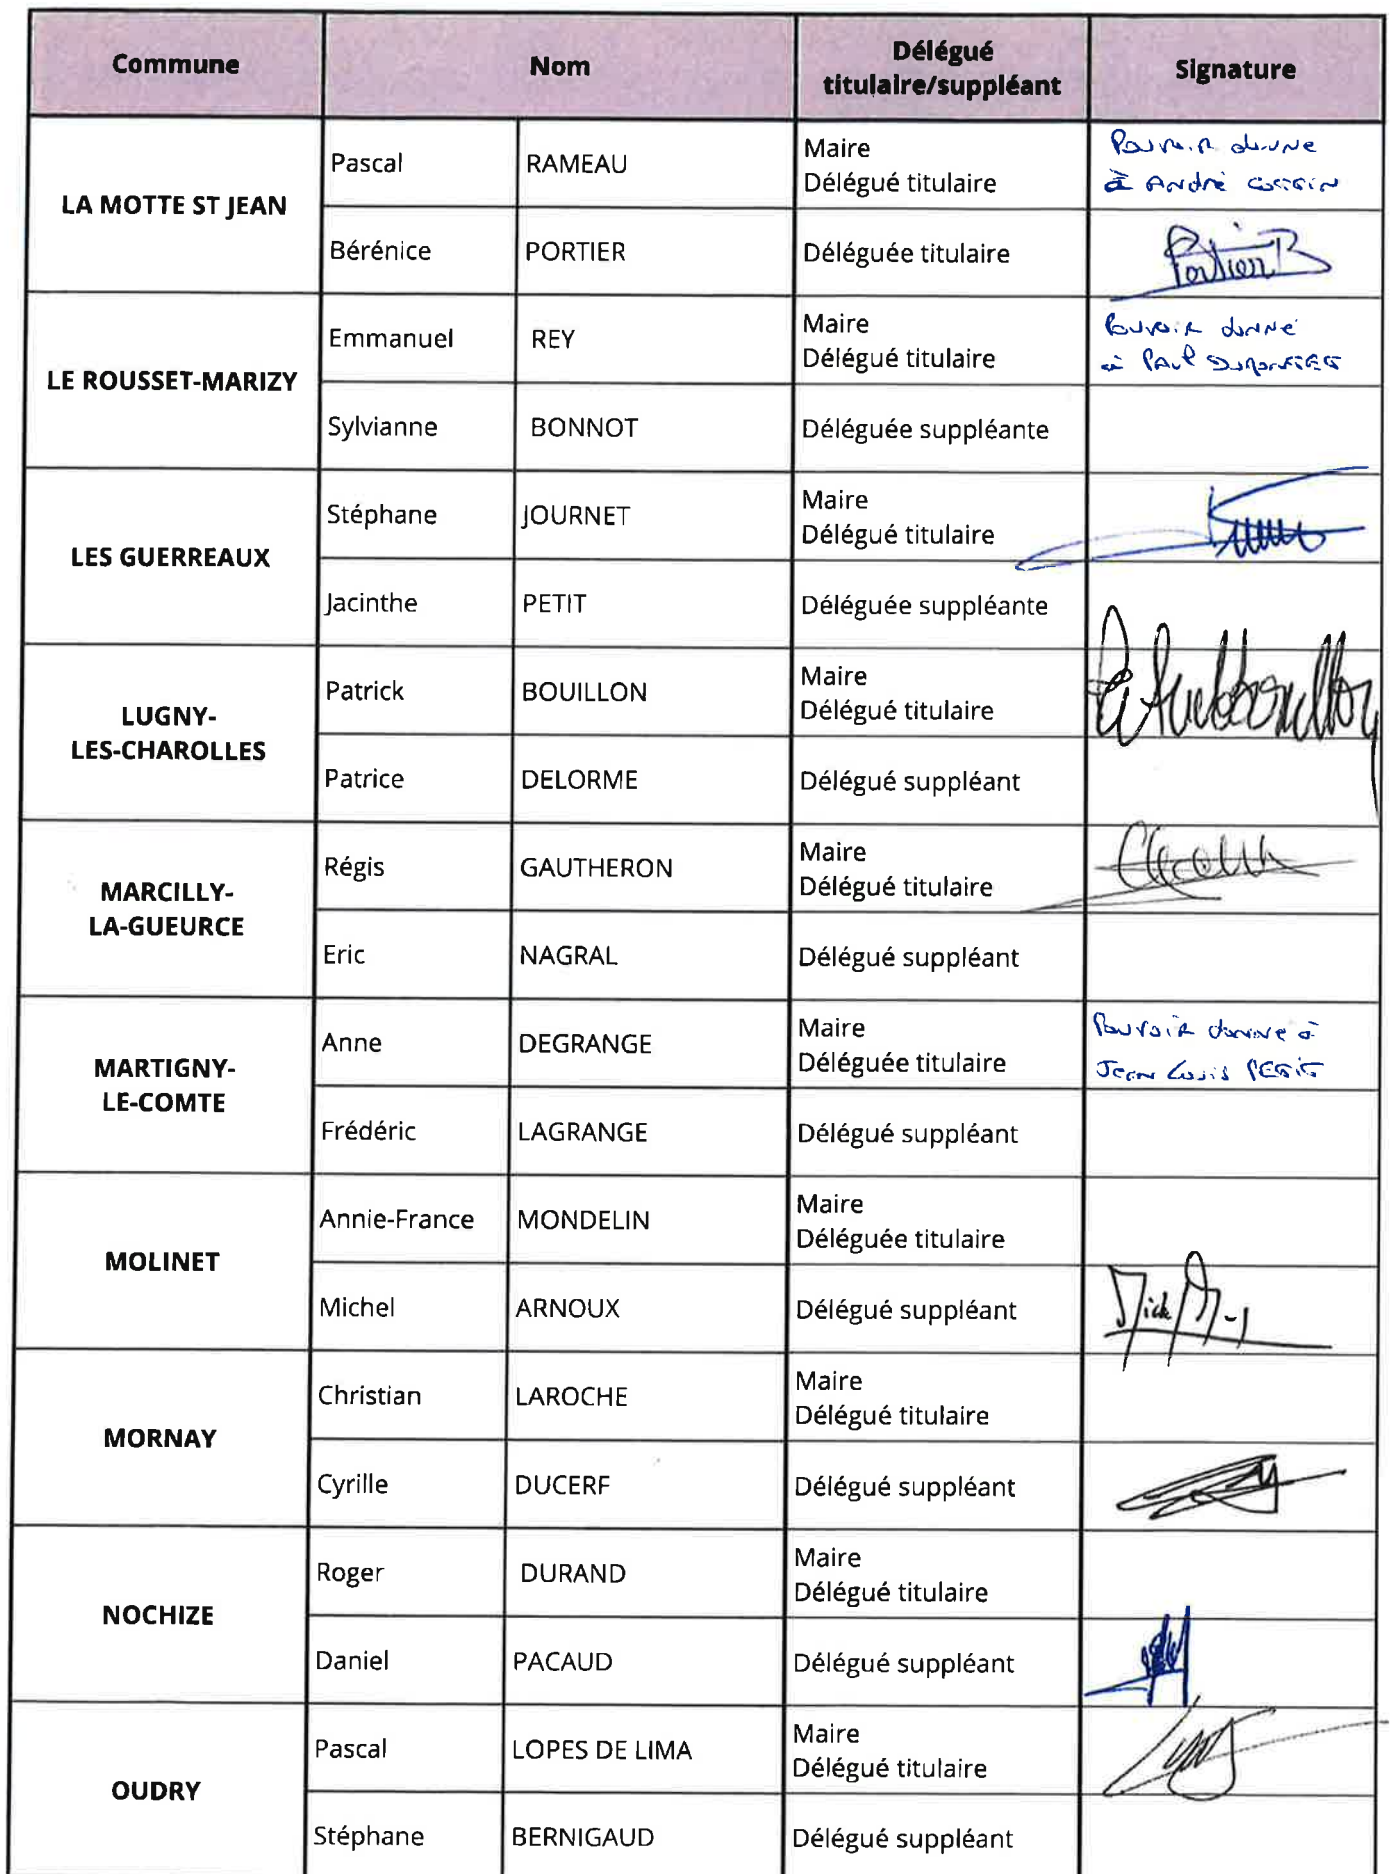 Commune Nom Délégué titulaire/suppléant Signature
LA MOTTE ST JEAN
Pascal RAMEAU Maire
Délégué titulaire
Pouvoir donné
à André
Bérénice PORTIER Déléguée titulaire
Portier B
LE ROUSSET-MARIZY
Emmanuel REY Maire
Délégué titulaire
Pouvoir donné
à Paul
Sylvianne BONNOT Déléguée suppléante
LES GUERREAUX
Stéphane JOURNET Maire
Délégué titulaire
Jacinthe PETIT Déléguée suppléante
LUGNY-
LES-CHAROLLES
Patrick BOUILLON Maire
Délégué titulaire
Patrice DELORME Délégué suppléant
MARCILLY-
LA-GUEURCE
Régis GAUTHERON Maire
Délégué titulaire
Eric NAGRAL Délégué suppléant
MARTIGNY-
LE-COMTE
Anne DEGRANGE Maire
Déléguée titulaire
Pouvoir donné à
Jean Louis PETIT
Frédéric LAGRANGE Délégué suppléant
MOLINET
Annie-France MONDELIN Maire
Déléguée titulaire
Michel ARNOUX Délégué suppléant
MORNAY
Christian LAROCHE Maire
Délégué titulaire
Cyrille DUCERF Délégué suppléant
NOCHIZE
Roger DURAND Maire
Délégué titulaire
Daniel PACAUD Délégué suppléant
OUDRY
Pascal LOPES DE LIMA Maire
Délégué titulaire
Stéphane BERNIGAUD Délégué suppléant